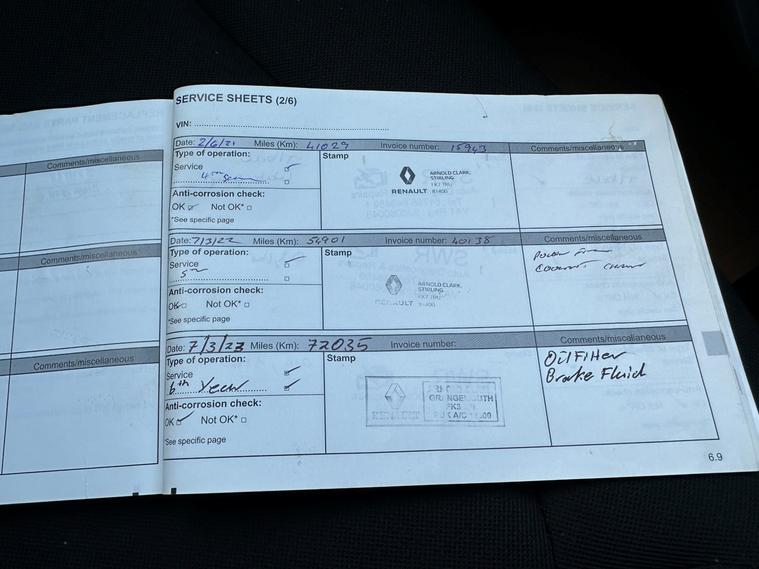 Comments/miscellaneous
Comments/miscellaneous
Comments/miscellaneous
SERVICE SHEETS (2/6)
VIN:
Date: 2/6/21 Miles (Km): 41029 Invoice number: 15943 Comments/miscellaneous
Type of operation: Stamp
Service
4th
Anti-corrosion check:
OK Not OK*
*See specific page
RENAULT
ARNOLD CLARK,
STIRLING
FK7 7RU
R1400
Date: 7/3/22 Miles (Km): 54901 Invoice number: 40138 Comments/miscellaneous
Type of operation: Stamp
Service
5th
Anti-corrosion check:
OK Not OK*
*See specific page
RENAULT
ARNOLD CLARK,
STIRLING
FK7 7RU
R1400
Pollen
Date: 7/3/23 Miles (Km): 72035 Invoice number: Comments/miscellaneous
Type of operation: Stamp
Service
6th Year
Anti-corrosion check:
OK Not OK*
*See specific page
RENAULT
GRANGEMOUTH
FK3
Oil Filter
Brake Fluid
6.9